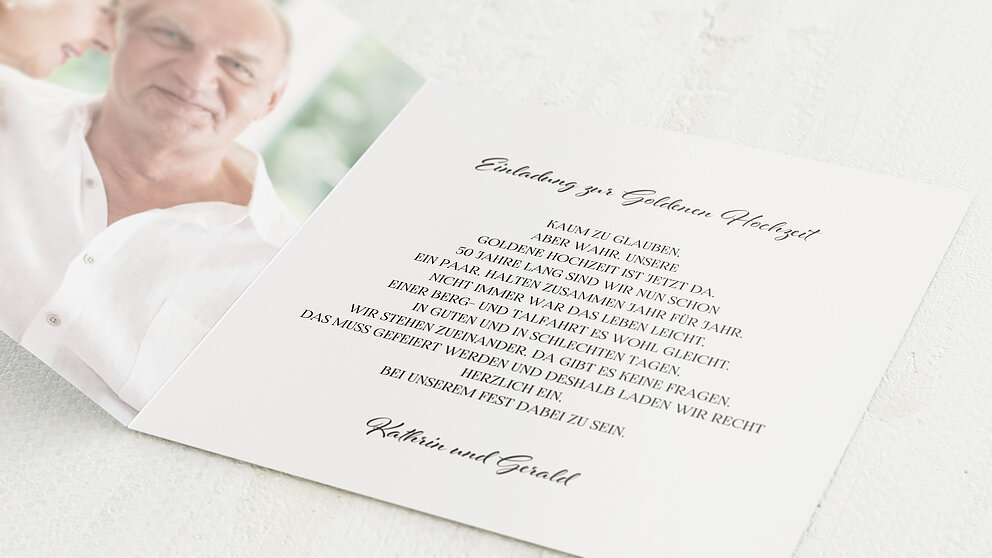 Einladung zur Goldenen Hochzeit
KAUM ZU GLAUBEN,
ABER WAHR. UNSERE
GOLDENE HOCHZEIT IST JETZT DA.
50 JAHRE LANG SIND WIR NUN SCHON
EIN PAAR, HALTEN ZUSAMMEN JAHR FÜR JAHR.
NICHT IMMER WAR DAS LEBEN LEICHT,
EINER BERG- UND TALFAHRT ES WOHL GLEICHT.
IN GUTEN UND IN SCHLECHTEN TAGEN,
WIR STEHEN ZUEINANDER, DA GIBT ES KEINE FRAGEN.
DAS MUSS GEFEIERT WERDEN UND DESHALB LADEN WIR RECHT
HERZLICH EIN,
BEI UNSEREM FEST DABEI ZU SEIN.
Kathrin und Gerald